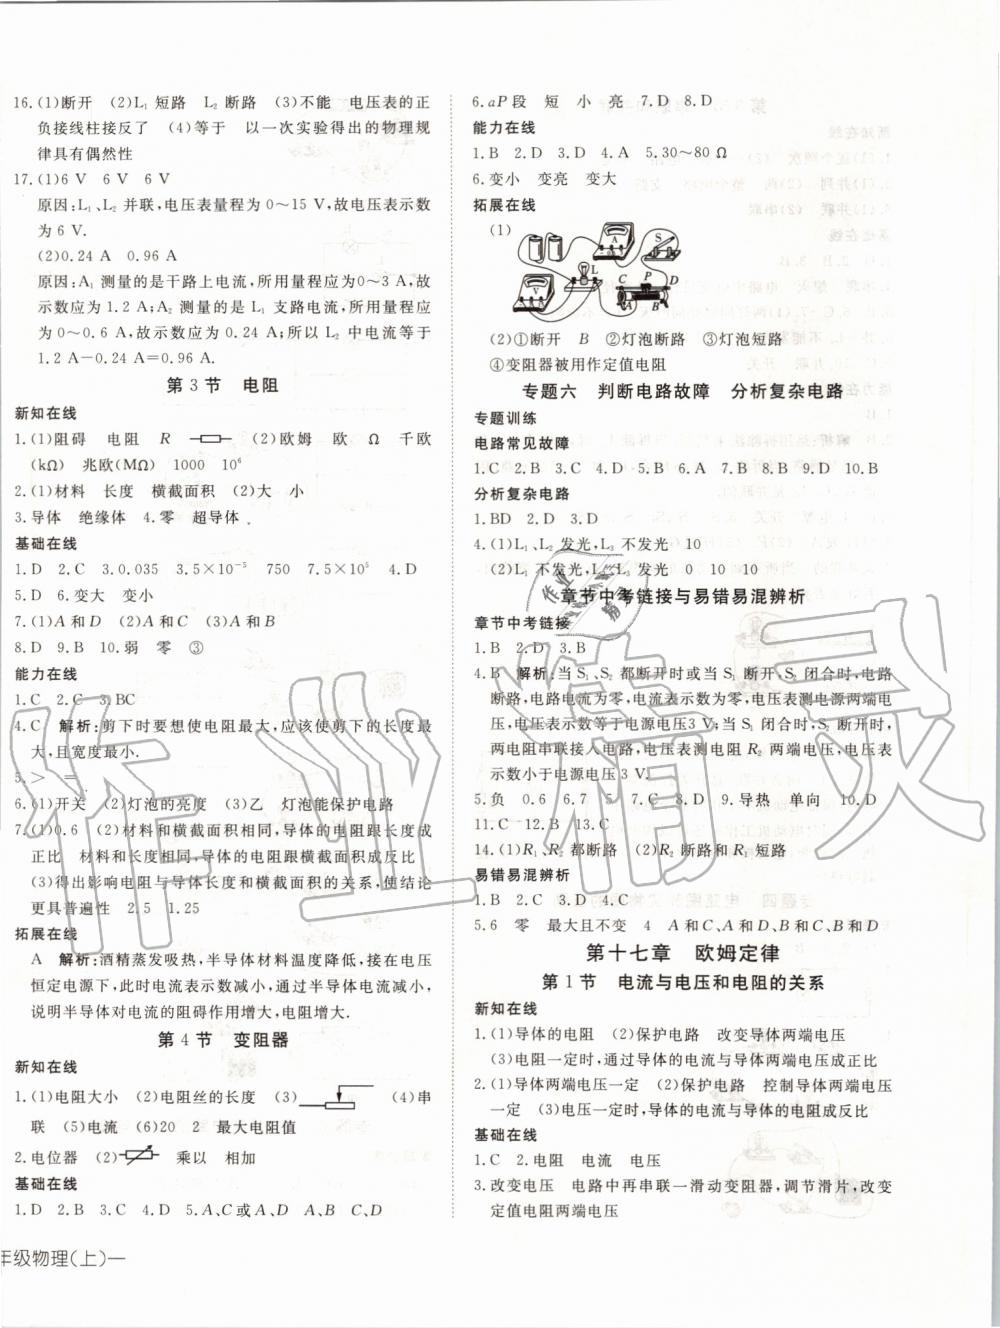 16.(1)断开 (2)L₁ 短路 L₂ 断路 (3)不能 电压表的正
负接线柱接反了 (4)等于 以一次实验得出的物理规
律具有偶然性
17.(1)6 V 6 V 6 V
原因:L₁、L₂ 并联,电压表量程为 0～15 V,故电压表示数
为 6 V.
(2)0.24 A 0.96 A
原因:A₁ 测量的是干路上电流,所用量程应为0～3 A,故
示数应为 1.2 A;A₂ 测量的是 L₁ 支路电流,所用量程应
为 0～0.6 A,故示数应为 0.24 A;所以 L₂ 中电流等于
1.2 A－0.24 A＝0.96 A.
第 3 节 电阻
新知在线
1.(1)阻碍 电阻 R (2)欧姆 欧 Ω 千欧
(kΩ) 兆欧(MΩ) 1000 10⁶
2.(1)材料 长度 横截面积 (2)大 小
3.导体 绝缘体 4.零 超导体
基础在线
1.D 2.C 3.0.035 3.5×10⁻⁵ 750 7.5×10⁵ 4.D
5.D 6.变大 变小
7.(1)A 和 D (2)A 和 C (3)A 和 B
8.D 9.B 10.弱 零 ③
能力在线
1.C 2.C 3.BC
4.C 解析:剪下时要想使电阻最大,应该使剪下的长度最
大,且宽度最小.
5.＞ ＝
6.(1)开关 (2)灯泡的亮度 (3)乙 灯泡能保护电路
7.(1)0.6 (2)材料和横截面积相同,导体的电阻跟长度成
正比 材料和长度相同,导体的电阻跟横截面积成反比
(3)得出影响电阻与导体长度和横截面积的关系,使结论
更具普遍性 2.5 1.25
拓展在线
A 解析:酒精蒸发吸热,半导体材料温度降低,在电压
恒定电源下,此时电流表示数减小,通过半导体电流减小,
说明半导体对电流的阻碍作用增大,电阻增大.
第 4 节 变阻器
新知在线
1.(1)电阻大小 (2)电阻丝的长度 (3) (4)串
联 (5)电流 (6)20 2 最大电阻值
2.电位器 (2) 乘以 相加
基础在线
1.D 2.B 3.C 4.D 5.A、C 或 A、D A、B B、C
年级物理(上)—
6.aP 段 短 小 亮 7.D 8.D
能力在线
1.B 2.D 3.D 4.A 5.30～80 Ω
6.变小 变亮 变大
拓展在线
(1)
A S L V C P D A B
(2)①断开 B ②灯泡断路 ③灯泡短路
④变阻器被用作定值电阻
专题六 判断电路故障 分析复杂电路
专题训练
电路常见故障
1.C 2.B 3.C 4.D 5.B 6.A 7.B 8.B 9.D 10.B
分析复杂电路
1.BD 2.D 3.D
4.(1)L₁、L₂ 发光,L₃ 不发光 10
(2)L₁ 不发光,L₂、L₃ 发光 0 10 10
章节中考链接与易错易混辨析
章节中考链接
1.B 2.D 3.B
4.B 解析:当 S₁、S₂ 都断开时或当 S₁ 断开、S₂ 闭合时,电路
断路,电路电流为零,电流表示数为零,电压表测电源两端电
压,电压表示数等于电源电压3 V;当 S₁ 闭合时,S₂ 断开时,
两电阻串联接入电路,电压表测电阻 R₂ 两端电压,电压表
示数小于电源电压3 V.
5.负 0.6 6.7 5 7.C 8.D 9.导热 单向 10.D
11.C 12.B 13.C
14.(1)R₁、R₂ 都断路 (2)R₂ 断路和 R₁ 短路
易错易混辨析
1.B 2.C 3.D 4.C
5.6 零 最大且不变 4 A 和 C、A 和 D、B 和 C、B 和 D
第十七章 欧姆定律
第 1 节 电流与电压和电阻的关系
新知在线
1.(1)导体的电阻 (2)保护电路 改变导体两端电压
(3)电阻一定时,通过导体的电流与导体两端电压成正比
2.(1)导体两端电压一定 (2)保护电路 控制导体两端电压
一定 (3)电压一定时,导体的电流与导体的电阻成反比
基础在线
1.C 2.电阻 电流 电压
3.改变电压 电路中再串联一滑动变阻器,调节滑片,改变
定值电阻两端电压
作业精灵